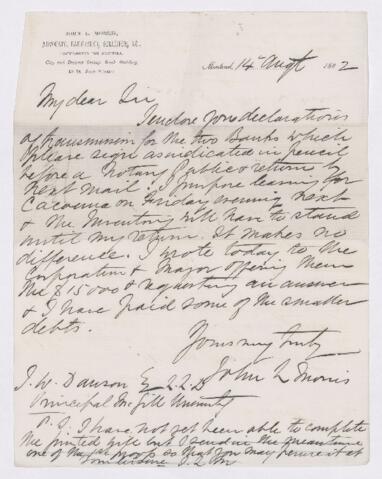 JOHN L. MORRIS,
ADVOCATE, BARRISTER, SOLICITOR, &C.
City and District Savings Bank Building,
St. James Street
Montreal, 14 Augt 1882
My dear Sir
I enclose you declarations
of transmission for the two Banks which
please sign as indicated in pencil
before a Notary Public & return
next mail. I purpose leaving for
Cacouna on Friday evening next
& the Inventory will have to stand
until my return. It makes no
difference. I wrote today to the
Corporation & Major offering them
the $15000 & requesting an answer
& I have paid some of the smaller
debts.
Yours very truly
John L Morris
J. W. Dawson Esq L.L.D
Principal McGill University
P.S. I have not yet been able to complete
the printed but I send in the meantime
one of the proofs so that you may peruse it at
your leisure J.L.M